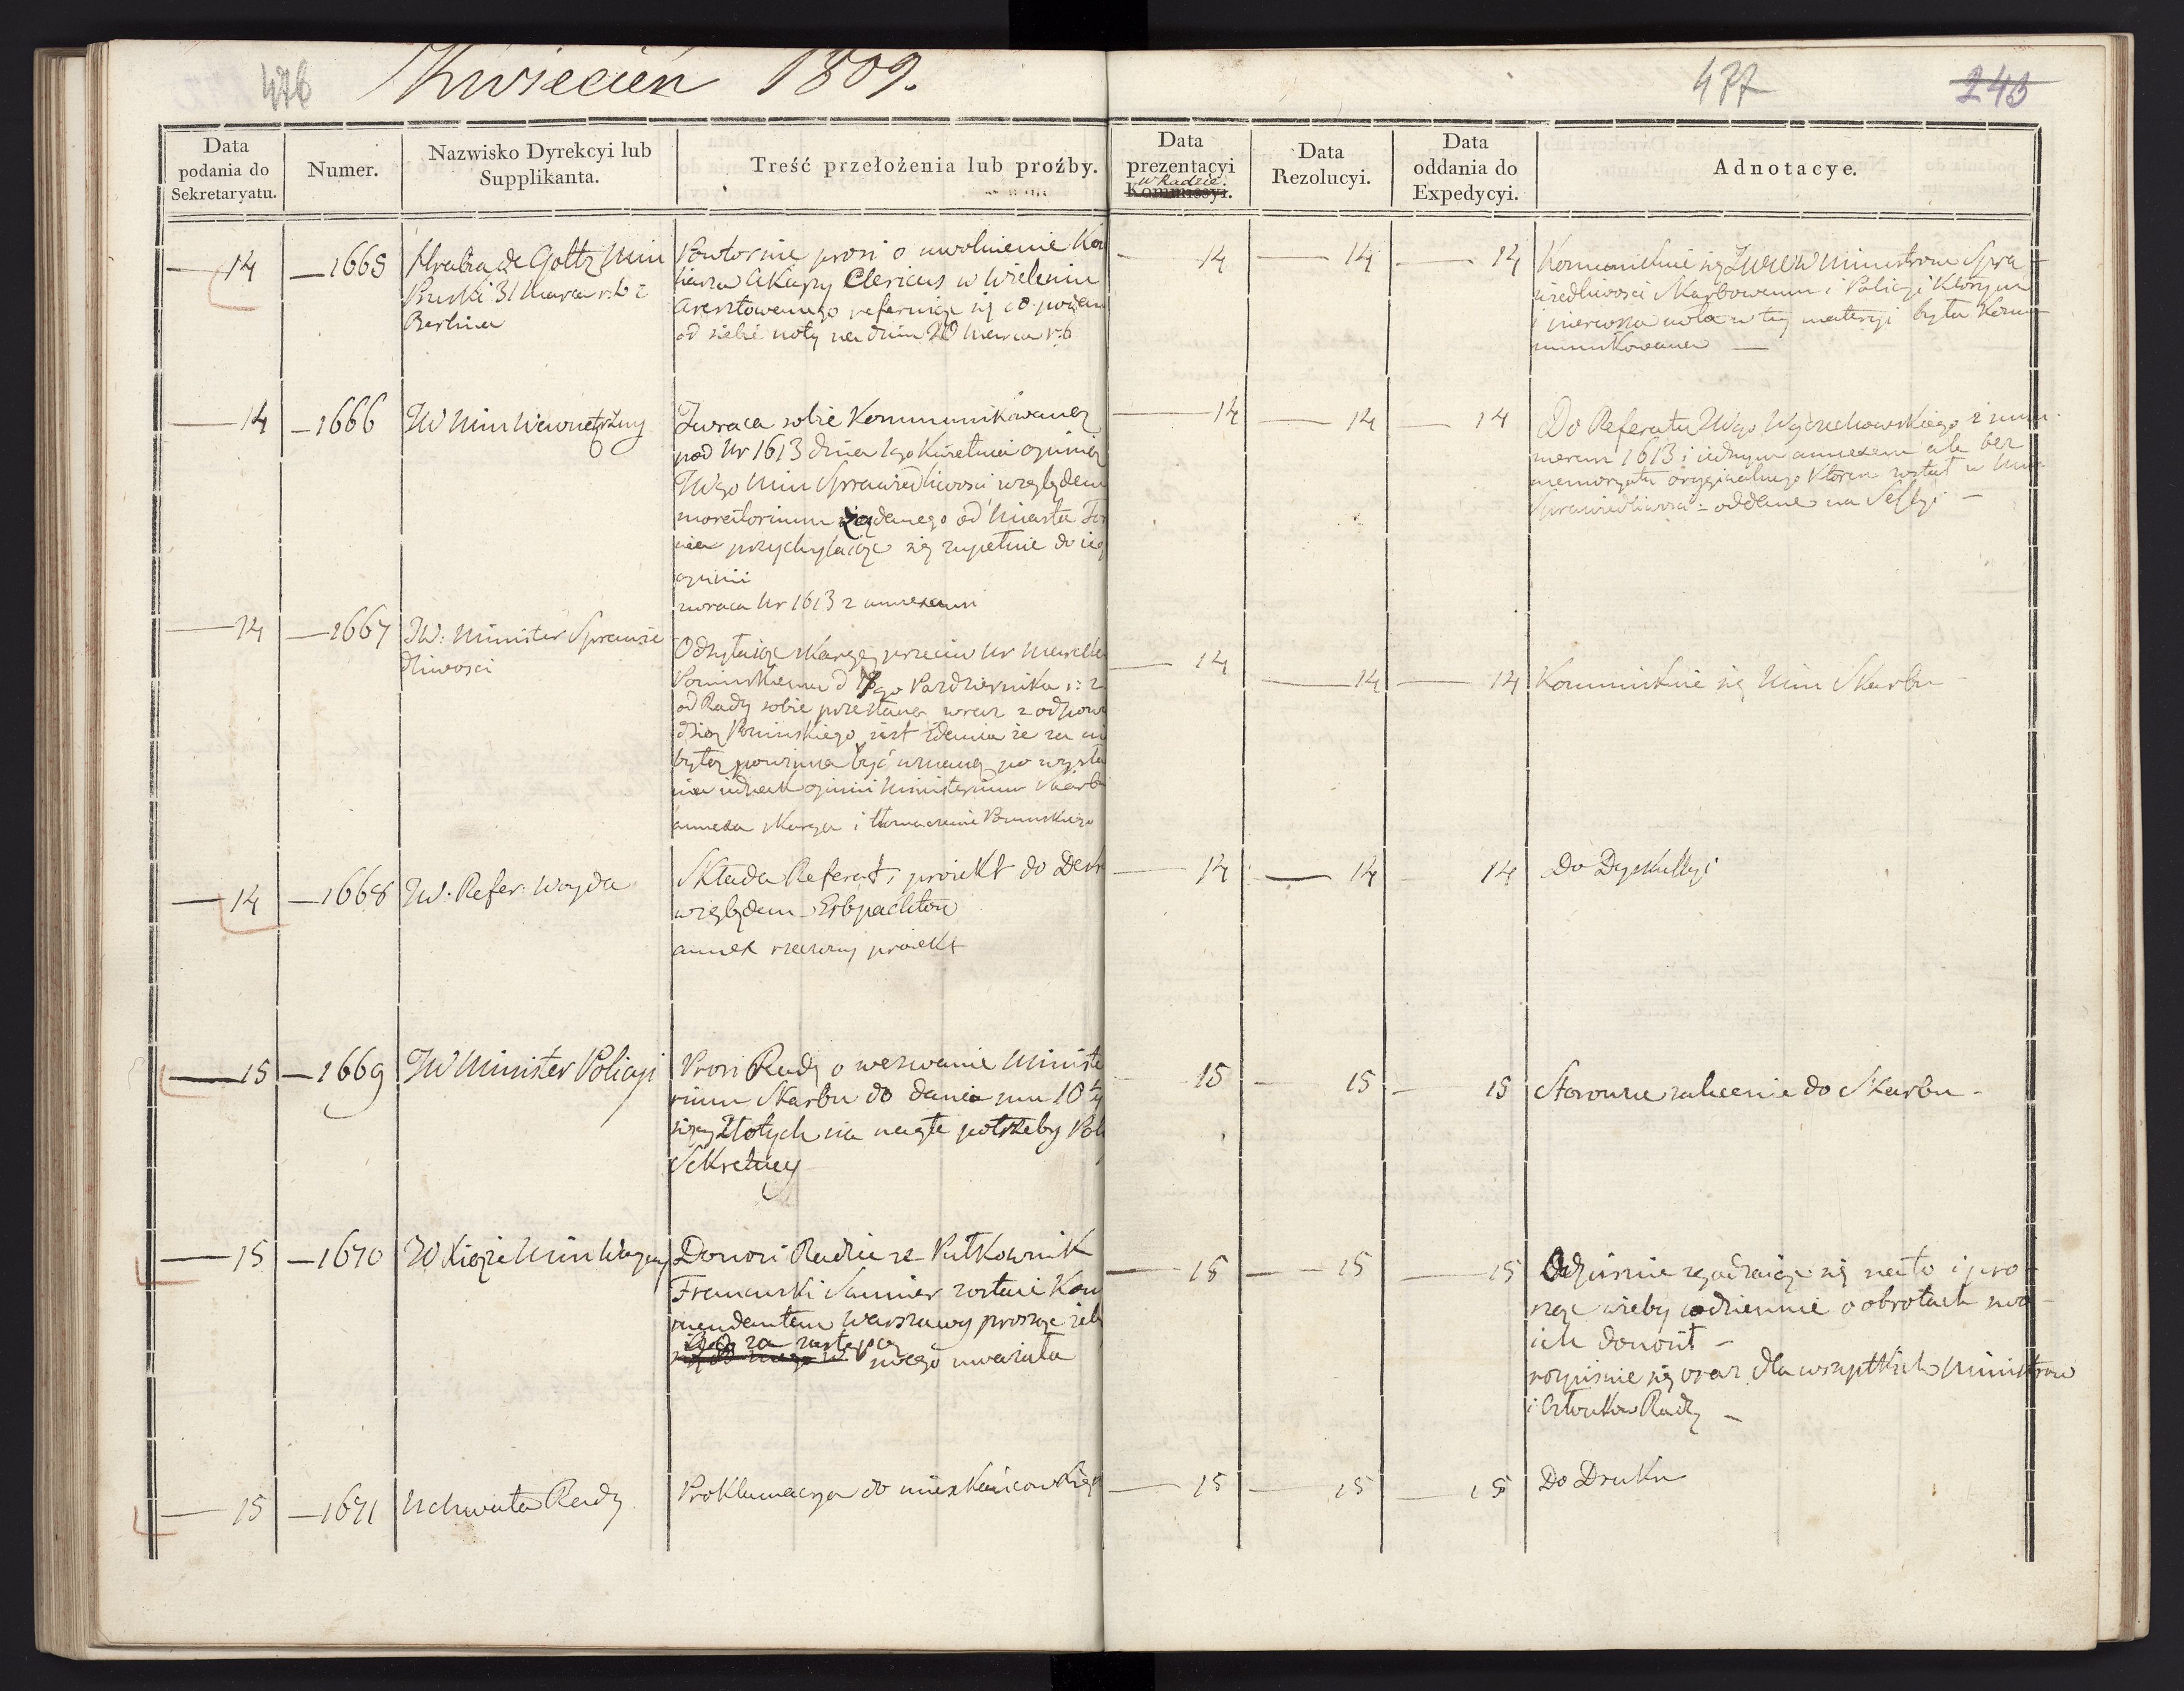 476
Kwiecień 1809.
477
243
Data podania do Sekretaryatu.
Numer.
Nazwisko Dyrekcyi lub Supplikanta.
Treść przełożenia lub proźby.
Data prezentacyi Kommissyi. w Radzie.
Data Rezolucyi.
Data oddania do Expedycyi.
Adnotacye.
14 1665 Hrabia de Goltz Min
Pruski 31 Marca r: b z
Berlina
Powtornie prosi o uwolnienie
Clericus w Wieleniu
Aresztowanego referuiąc się do
od siebie noty na dniu 20 Marca r: b
14 14 14
Kommunikuie się JWW Ministrom Spra
wiedliwosci Skarbowemu i Policyi Ktorym
i pierwsza nota w tey materyi była Kom
munikowana
14 1666 JW Min Wewnętrzny
Zwraca sobie Kommunikowaną
pod Nr 1613 dnia Kwietnia opinią
JWgo Min Sprawiedliwosci względem
moratorium żądanego od Miasta
przychylaiąc się zupełnie do iego
opinii
zwraca Nr 1613 z annexami
14 14 14
Do Referatu Wgo Woyciechowskiego z nu
merem 1613 i iednym annexem ale bez
memoryału oryginalnego Ktoren został w Min
Sprawiedliwosci - oddane na Sessyi
14 1667 JW: Minister Sprawie
dliwosci
Odsyłaiąc skargę przeciw
Ponińskiemu d 7go Pazdziernika r: z
od Rady sobie przesłaną wraz z odpowie
dzią Ponińskiego iest zdania że za nie
byłą powinna być uznaną po
iednak opinii Ministerium Skarbu
annexa skarga i tłomaczenie Ponińskiego
14 14 14
Kommunikuie się Min Skarbu
14 1668 W. Refer: Woyda
Składa Referat i proiekt do Dekr
względem Erbpachtow
annex rzeczony proiekt
14 14 14
Do Dyskussyi
15 1669 JW Minister Policyi
Prosi Rady o wezwanie Ministe
rium Skarbu do dania mu 10 ty
sięcy Złotych na nagłe potrzeby Poli
Sekretney
15 15 15
Stosowne zalecenie do Skarbu
15 1670 JO Xiąże Min Woyny
Donosi Radzie ze Pułkownik
Francuski Saunier zostaie Kom
mendantem Warszawy prosząc żeby
iego za zastępcę
swego uważała
15 15 15
Odpisuie zgadzaiąc się na to i pro
sząc ażeby codziennie o obrotach swo
ich donosił
rozpisuie się oraz dla wszystkich Ministrow
i Członkow Rady
15 1671 Uchwała Rady
Proklamacya do mieszkańcow
15 15 15
Do Druku